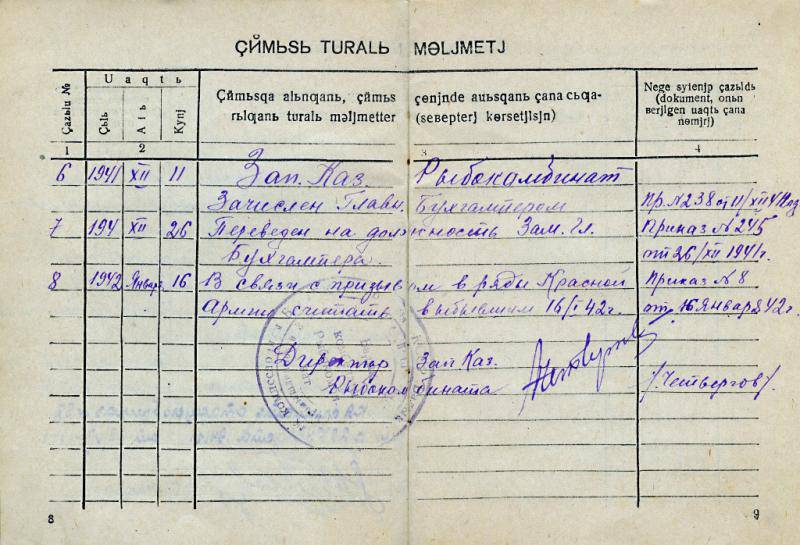 ÇŪMЬSЬ TURALЬ MƏLJMETJ
Çazьlu №
Uaqtь
Çьl
Aiь
Kynj
Çūmьsqa alьnƣanь, çūmьs
rьlƣanь turalь məljmetter
çenjnde auьsqanь çana сьƣa-
(seвepterj kɵrsetjlsjn)
Nege syienjp çazьldь
(dokument, onьn
вerjlgen uaqtь çana
nɵmjrj)
1 2 3 4
6 1941 XII 11 Зап. Каз. Рыбокомбинат
Зачислен Главн. Бухгалтером Пр. N 238 от 11/XII 41
7 194 XII 26 Переведен на должность Зам. Гл. Приказ N 245
Бухгалтера. от 26/XII 1941г.
8 1942 Январь 16 В связи с призывом в ряды Красной Приказ N 8
Армии считать выбывшим 16/I 42г. от 16 Января 42г.
Директор Зап Каз.
Рыбокомбината /Четвергов/.
8 9